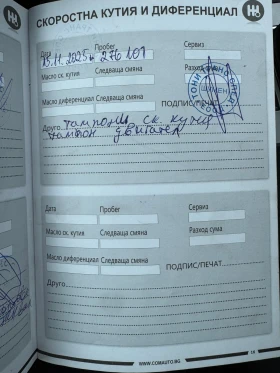 СКОРОСТНА КУТИЯ И ДИФЕРЕНЦИАЛ
Дата Пробег Сервиз
15.11.2025г 276 101
Масло ск. кутия Следваща смяна Разход
Масло диференциал Следваща смяна
ПОДПИС/ПЕЧАТ
Друго тампони ск. кутия
тампон двигател
Дата Пробег Сервиз
Масло ск. кутия Следваща смяна Разход сума
Масло диференциал Следваща смяна
ПОДПИС/ПЕЧАТ
Друго
WWW.COMAUTO.BG